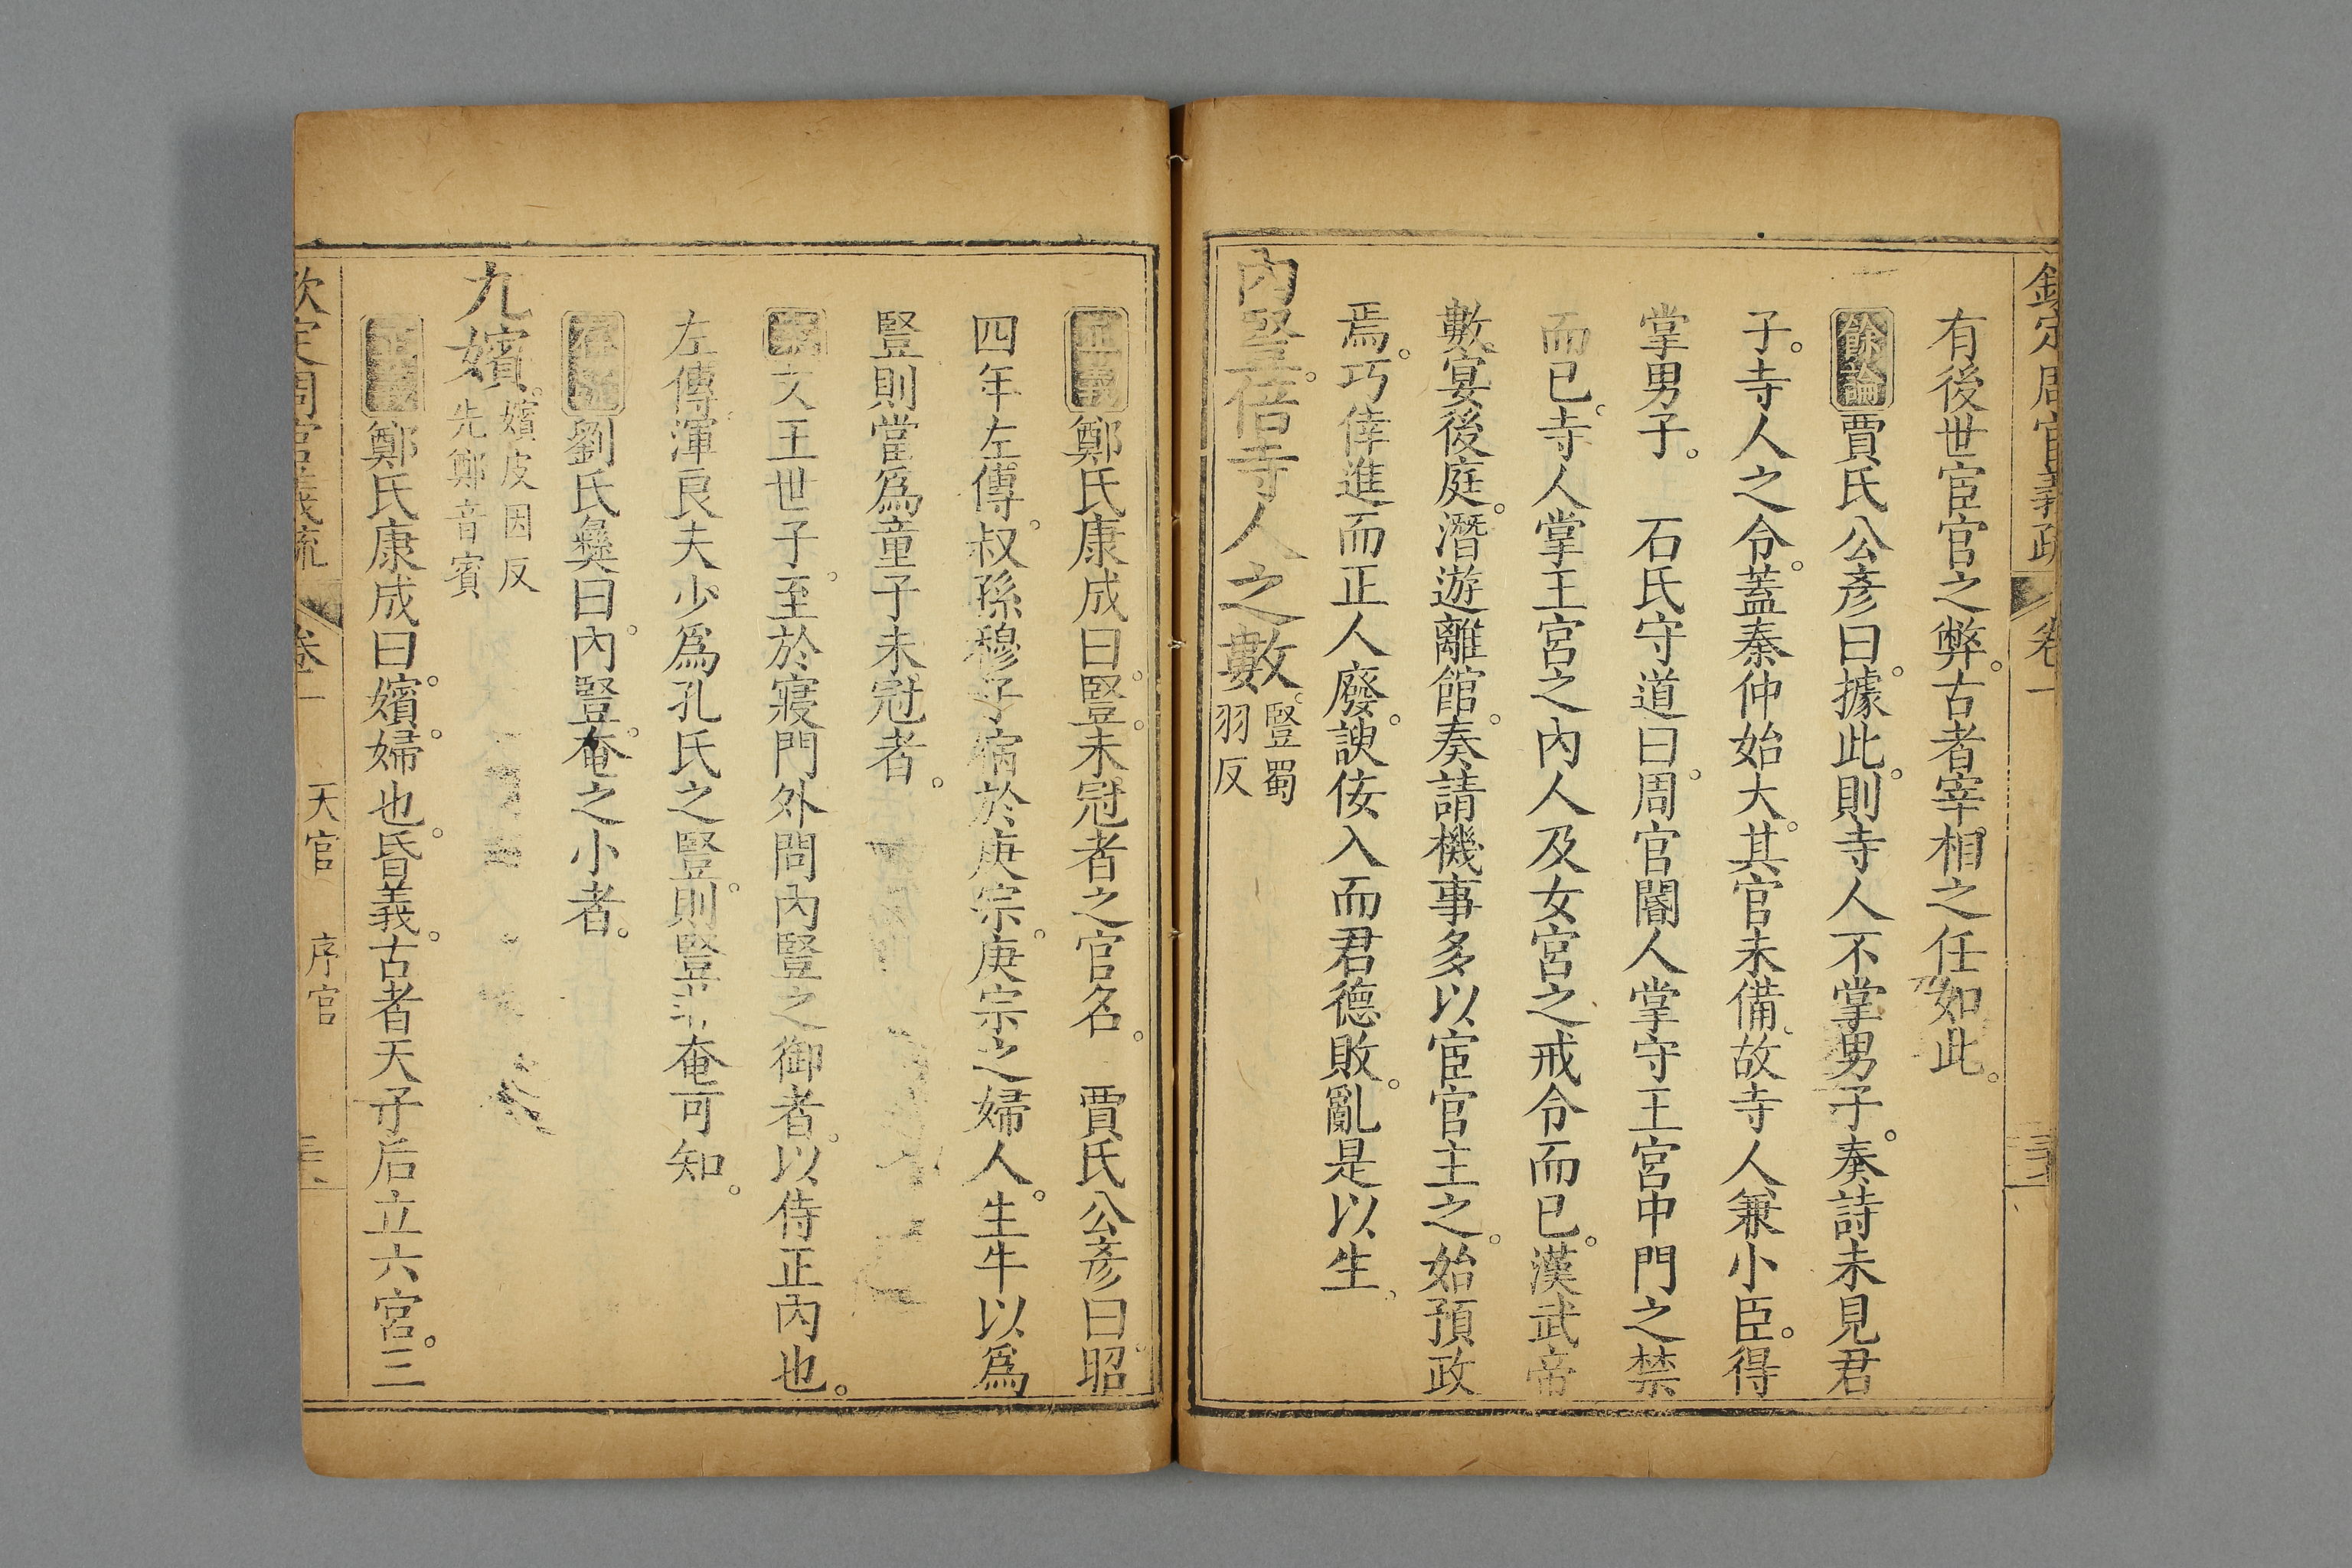 欽定周官義疏 卷一
有後世宦官之弊。古者宰相之任如此。
餘論賈氏公彥曰。據此。則寺人不掌男子。奏詩未見君
子。寺人之令。蓋秦仲始大。其官未備。故寺人兼小臣。得
掌男子。 石氏守道曰。周官閽人掌守王宮中門之禁
而已。寺人掌王宮之內人及女宮之戒令而已。漢武帝
數宴後庭。潛遊離館。奏請機事。多以宦官主之。始預政
焉。巧倖進而正人廢。諛佞入而君德敗。亂是以生。
內豎。倍寺人之數。豎蜀
羽反
正義鄭氏康成曰。豎。未冠者之官名。 賈氏公彥曰。昭
四年左傳。叔孫穆子宿於庚宗。庚宗之婦人。生牛以爲
豎則當爲童子未冠者。
文王世子。至於寢門外問內豎之御者。以侍正內也。
左傳渾良夫。少爲孔氏之豎。則豎非奄可知。
劉氏彝曰。內豎。奄之小者。
九嬪。嬪皮因反
先鄭音賓
鄭氏康成曰。嬪。婦也。昏義。古者天子后立六宮。三
欽定周官義疏 卷一 天官 序官